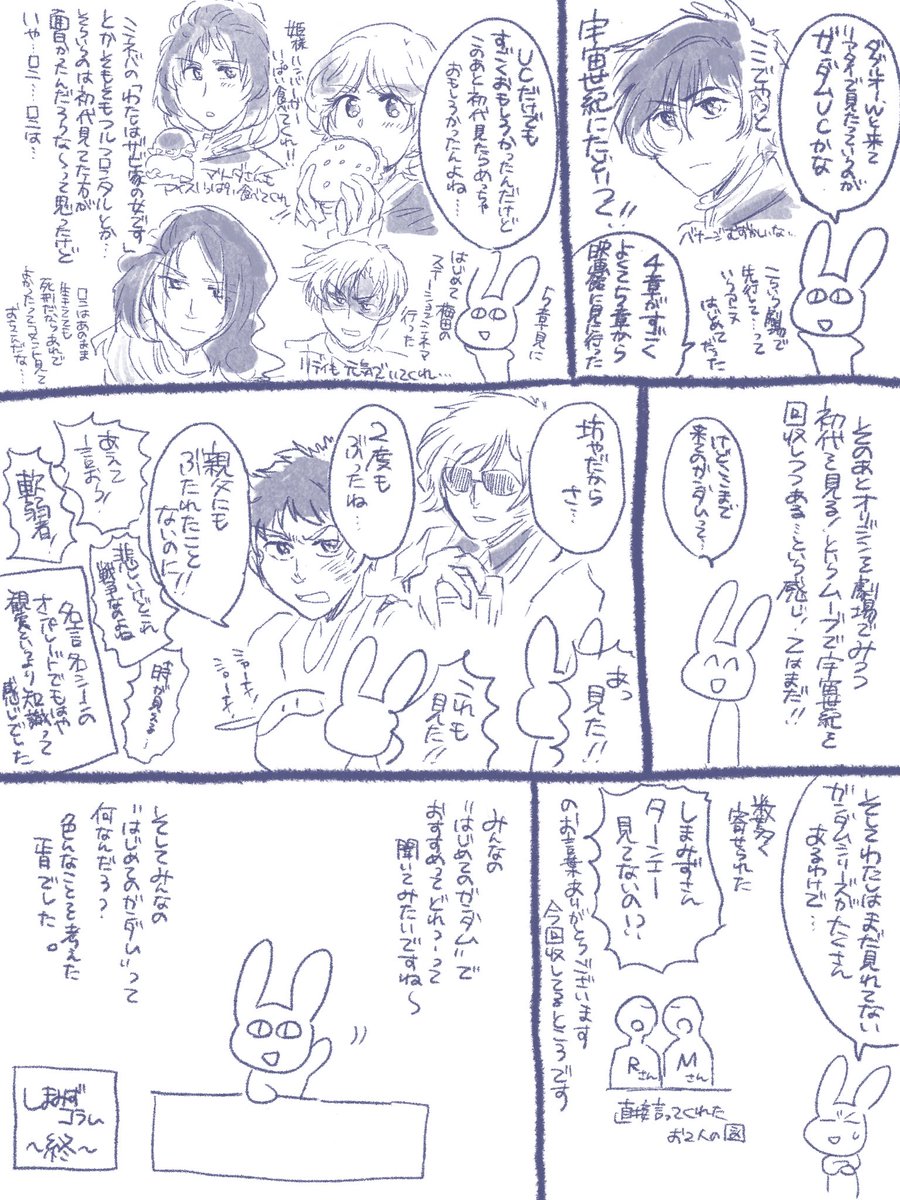 ダブルオーWと来て
リアタイで見たっていうのが
ガンダムUCかな
ここでやっと
宇宙世紀にたどりつく!!
バナージむずかしいな…
こういう劇場で
先行して…って
いうアニメ
はじめてだった
4章がすごく
よくて5章から
映画館に見に行った
5章見に
はじめて梅田の
ステーションシネマ
行った
UCだけでも
すごくおもしろかったんだけど
このあと初代見たらめっちゃ
おもしろかったんよね…
姫様
いっぱい食べてくれ!!
マリーダさんも
アイスいっぱい食べてくれ
リディも元気でいてくれ…
ミネバの「わたしはザビ家の女です」
とかそもそもフルフロンタルとか…
そういうのは初代見てた方が
面白かったんだろうな〜って思ったけど
いや…ロニ…ロニは…
ロニはあのまま
生きてても
死刑だからあれで
よかったってコメント見て
おちこんだな…
そのあとオリジンを劇場でみつつ
初代を見る!というムーブで宇宙世紀を
回収しつつある…という感じ!ではまだ!!
けどここまで
来るとガンダムって…
坊やだから
さ…
2度も
ぶったね…
親父にも
ぶたれたこと
ないのに!!
あっ
見た!!
これも
見た!!
あえて
言おう!
軟弱者!
悲しいけどこれ
戦争なのよね
時が見える…
名言名シーンの
オンパレードでもはや
観賞というより知識って
感じでした
そもそもわたしはまだ見れてない
ガンダムシリーズがたくさん
あるわけで…
数多く
寄せられた
しまみずさん
ターンエー
見てないの!?
のお言葉ありがとうございます
今回収してるところです
Rさん
Mさん
直接言ってくれた
お2人の図
みんなの
"はじめてのガンダム"で
おすすめってどれっ!って
聞いてみたいですね〜
そしてみんなの
"はじめてのガンダム"って
何なんだろう?
色んなことを考えた
一日でした。
しまみず
コラム
〜終〜